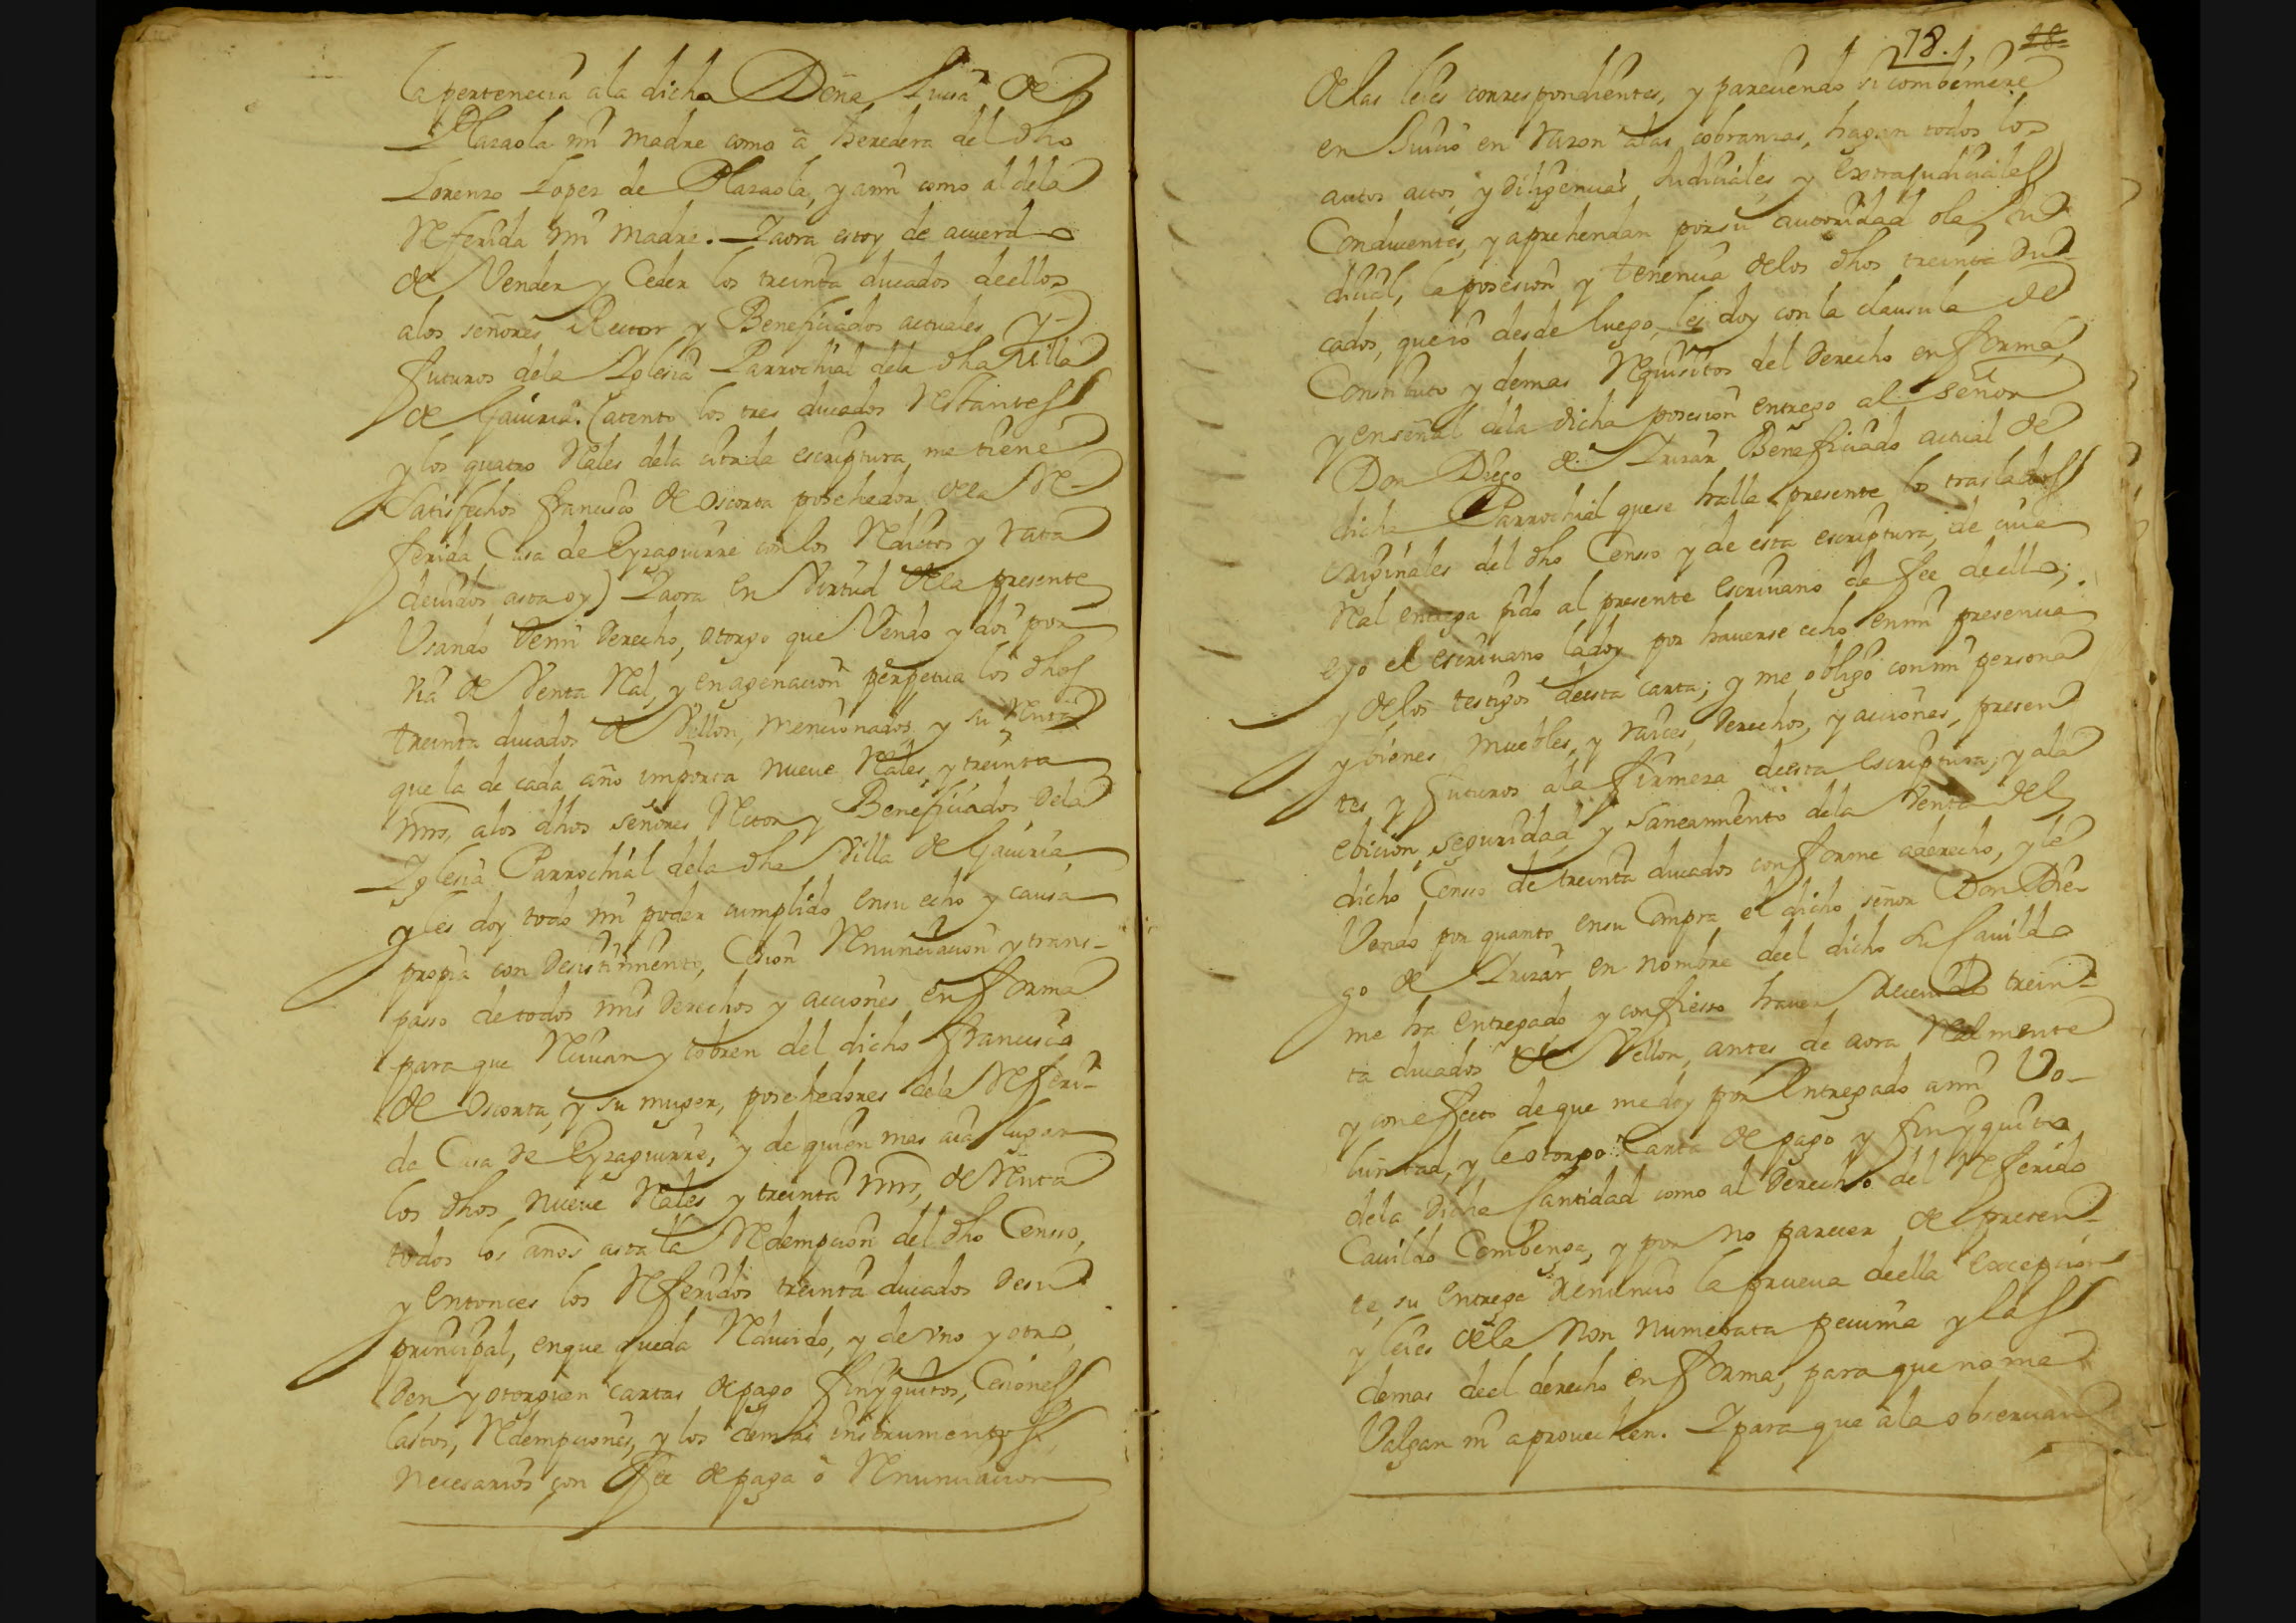 la pertenecia ala dicha Doña Luisa de
Plazaola mi madre como â heredera del dho
Lorenzo Lopez de Plazaola, y ami como al dela
Referida mi madre. Iaora estoy de acuerdo
de Vender y Ceder los treinta ducados deellos
alos señores Rector y Beneficiados actuales y
futuros dela Iglesia Parrochial dela dha Villa
de Gauiria. (atento los tres ducados Restantes
y los quatro Reales dela citada escriptura me tiene
satisfechos francisco de oscorta posehedor dela Re-
ferida Casa de Eyzaguirre con los Reditos y rata
deuidos asta oy) Iaora en Virtud dela presente
Usando demi derecho, otorgo que Vendo y doi por
via de Venta Real, y enagenacion perpetua los dhos
treinta ducados de Vellon, mencionados y su Renta
que la de cada año importa nueue Reales y treinta
mrs, alos dhos señores Retor y Beneficiados dela
Iglesia Parrochial dela dha Villa de Gauiria,
y les doy todo mi poder cumplido ensu echo y causa
propia con desistimiento, Cesion Renunciacion y trans-
passo de todos mis derechos y acciones en forma
para que Reciuan y cobren del dicho francisco
de oscorta, y su muger, posehedores dela Referi-
da Casa de Eyzaguirre, y de quien mas aia lugar
los dhos nueue Reales y treinta mrs, de Renta
todos los años asta la Redempcion del dho Censso,
y entonces los Referidos treinta ducados desu
principal, enque queda Reducido, y de vno y otro,
den y otorguen cartas de pago finyquitos, Cesiones
lastos, Redempciones, y los demas instrumentos
necesarios con fee de paga ô Renunciacion
78. 18
delas leies correspondientes, y pareciendo si combiniere
en Juicio en razon alas cobranzas, hagan todos los
autos actos y diligencias Judiciales y extrajudiciales
Conducentes, y aprehendan porsu autoridad ola Ju-
dicial, la posesion y tenencia delos dhos treinta Du-
cados, que io desde luego les doy con la clausula de
Constituto y demas Requisitos del derecho en forma,
y enseñal dela dicha posesion entrego al señor
Don Diego de Irizar Beneficiado actual de
dicha Parrochial quese halla presente los traslados
originales del dho Censso y de esta escriptura, de cuia
Real entrega pido al presente escriuano de fee deello;
eyo el escriuano ladoy por hauerse echo enmi presencia
y delos testigos deesta carta; y me obligo conmi persona
y bienes muebles, y raices, derechos, y acciones, presen
tes y futuros ala firmeza deesta escriptura; y ala
ebicion seguridad, y saneamiento dela Venta del
dicho Censso de treinta ducados conforme aderecho, y le
Vendo por quanto ensu Compra el dicho señor Don Die-
go de Irizar en nombre deel dicho su Cauildo
me ha entregado y confiesso hauer Reciuido trein-
ta ducados de Vellon, antes de aora Realmente
y con efecto deque medoy por Entregado ami Vo-
luntad, y le otorgo Carta de pago y finyquito
dela dicha Cantidad como al derecho del Referido
Cauildo Combenga, y por no parecer de presen-
te, su entrega Renuncio la prueua deella excepcion
y leies dela non numerata pecunia y las
demas deel derecho en forma, para que no me
Valgan ni aprouechen. Ipara que âla obseruan